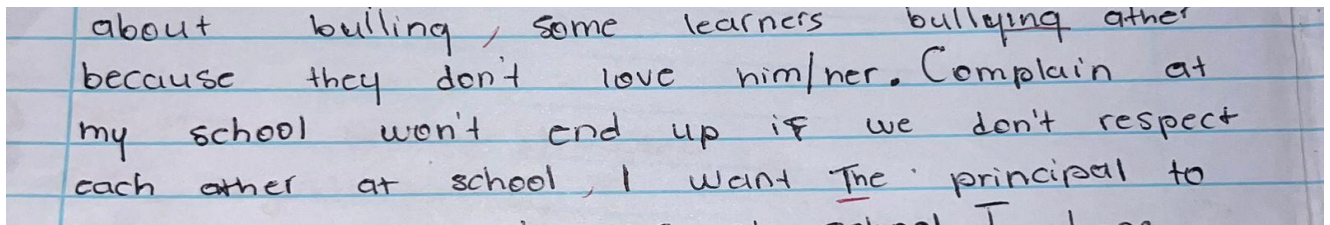 about bulling, some learners bullying ather
because they don't love him/her. Complain at
my school won't end up if we don't respect
each ather at school, I want The principal to